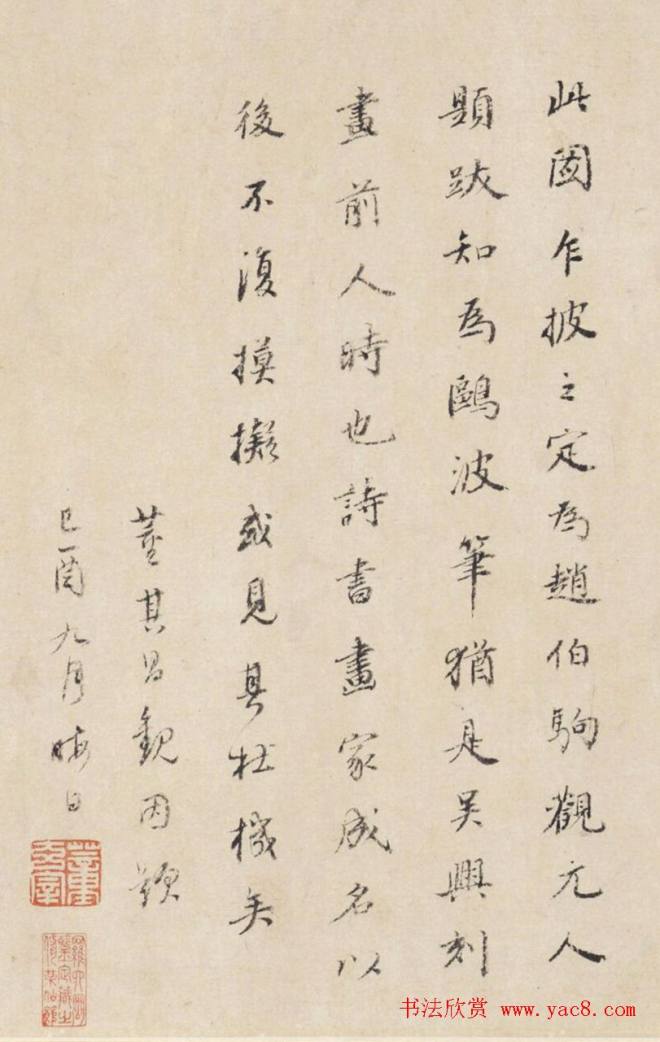 此圖乍披之定為趙伯駒觀元人
題跋知為鷗波筆猶是吳興刻
畫前人時也詩書畫家成名以
後不復摸擬或見具杜機矣
董其昌觀因題
己酉九月晦日
書法欣赏 www.yac8.com